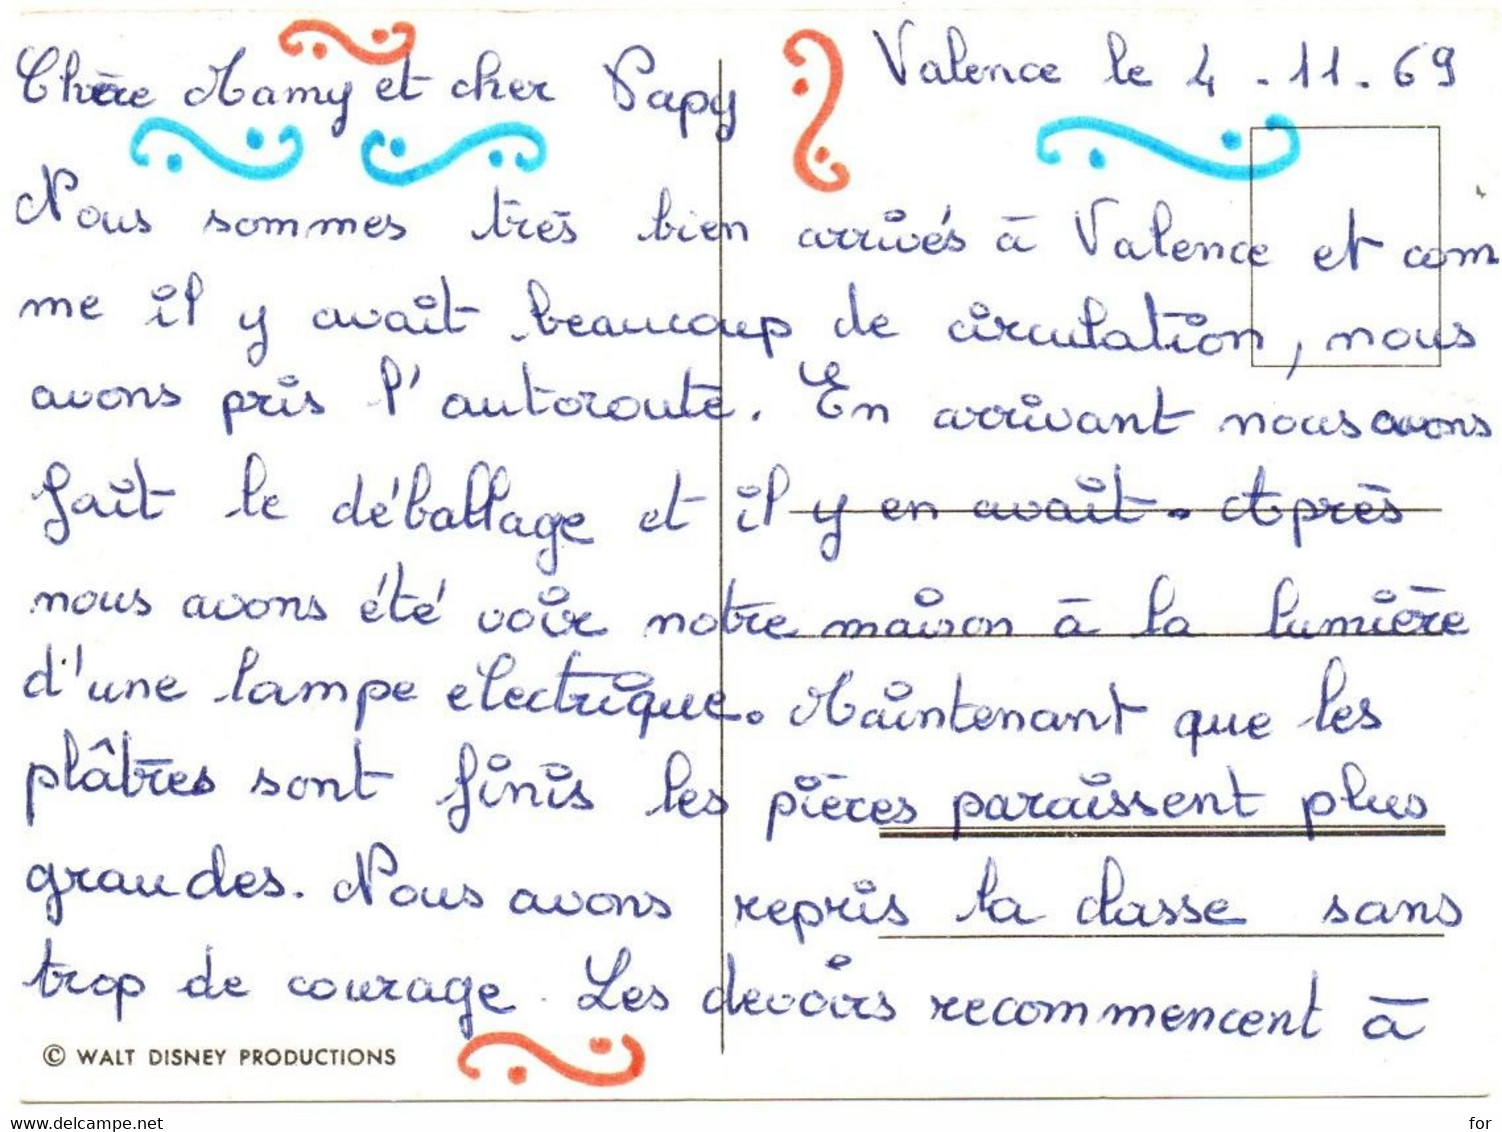 Valence le 4 - 11 . 69
Chère Mamy et cher Papy
Nous sommes très bien arrivés à Valence et com
me il y avait beaucoup de circulation, nous
avons pris l'autoroute. En arrivant nous avons
fait le déballage et il y en avait. Après
nous avons été voir notre maison à la lumière
d'une lampe electrique. Maintenant que les
plâtres sont finis les pièces paraissent plus
grandes. Nous avons repris la classe sans
trop de courage. Les devoirs recommencent à
© WALT DISNEY PRODUCTIONS
www.delcampe.net
for